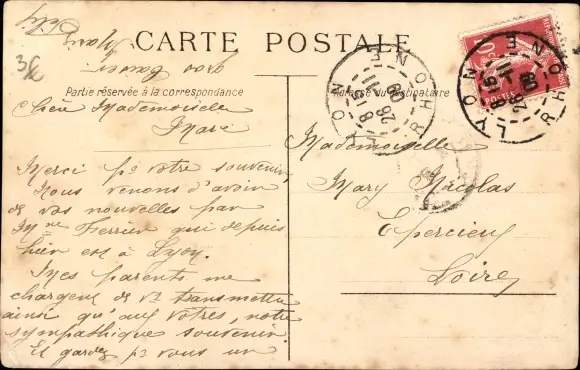 CARTE POSTALE
Partie réservée à la correspondance
Adresse du destinataire
3€
Chère Mademoiselle
Marie
Merci pr votre souvenir,
Nous venons d'avoir
de vos nouvelles par
Mme Ferrier qui depuis
hier est à Lyon.
Mes parents me
chargent de vs transmettre
ainsi qu'aux vôtres, notre
sympathique souvenir.
Et gardez pr vous un
Mademoiselle
Mary Nicolas
Epercieux
Loire
LYON
RHONE
LYON
RHONE
10